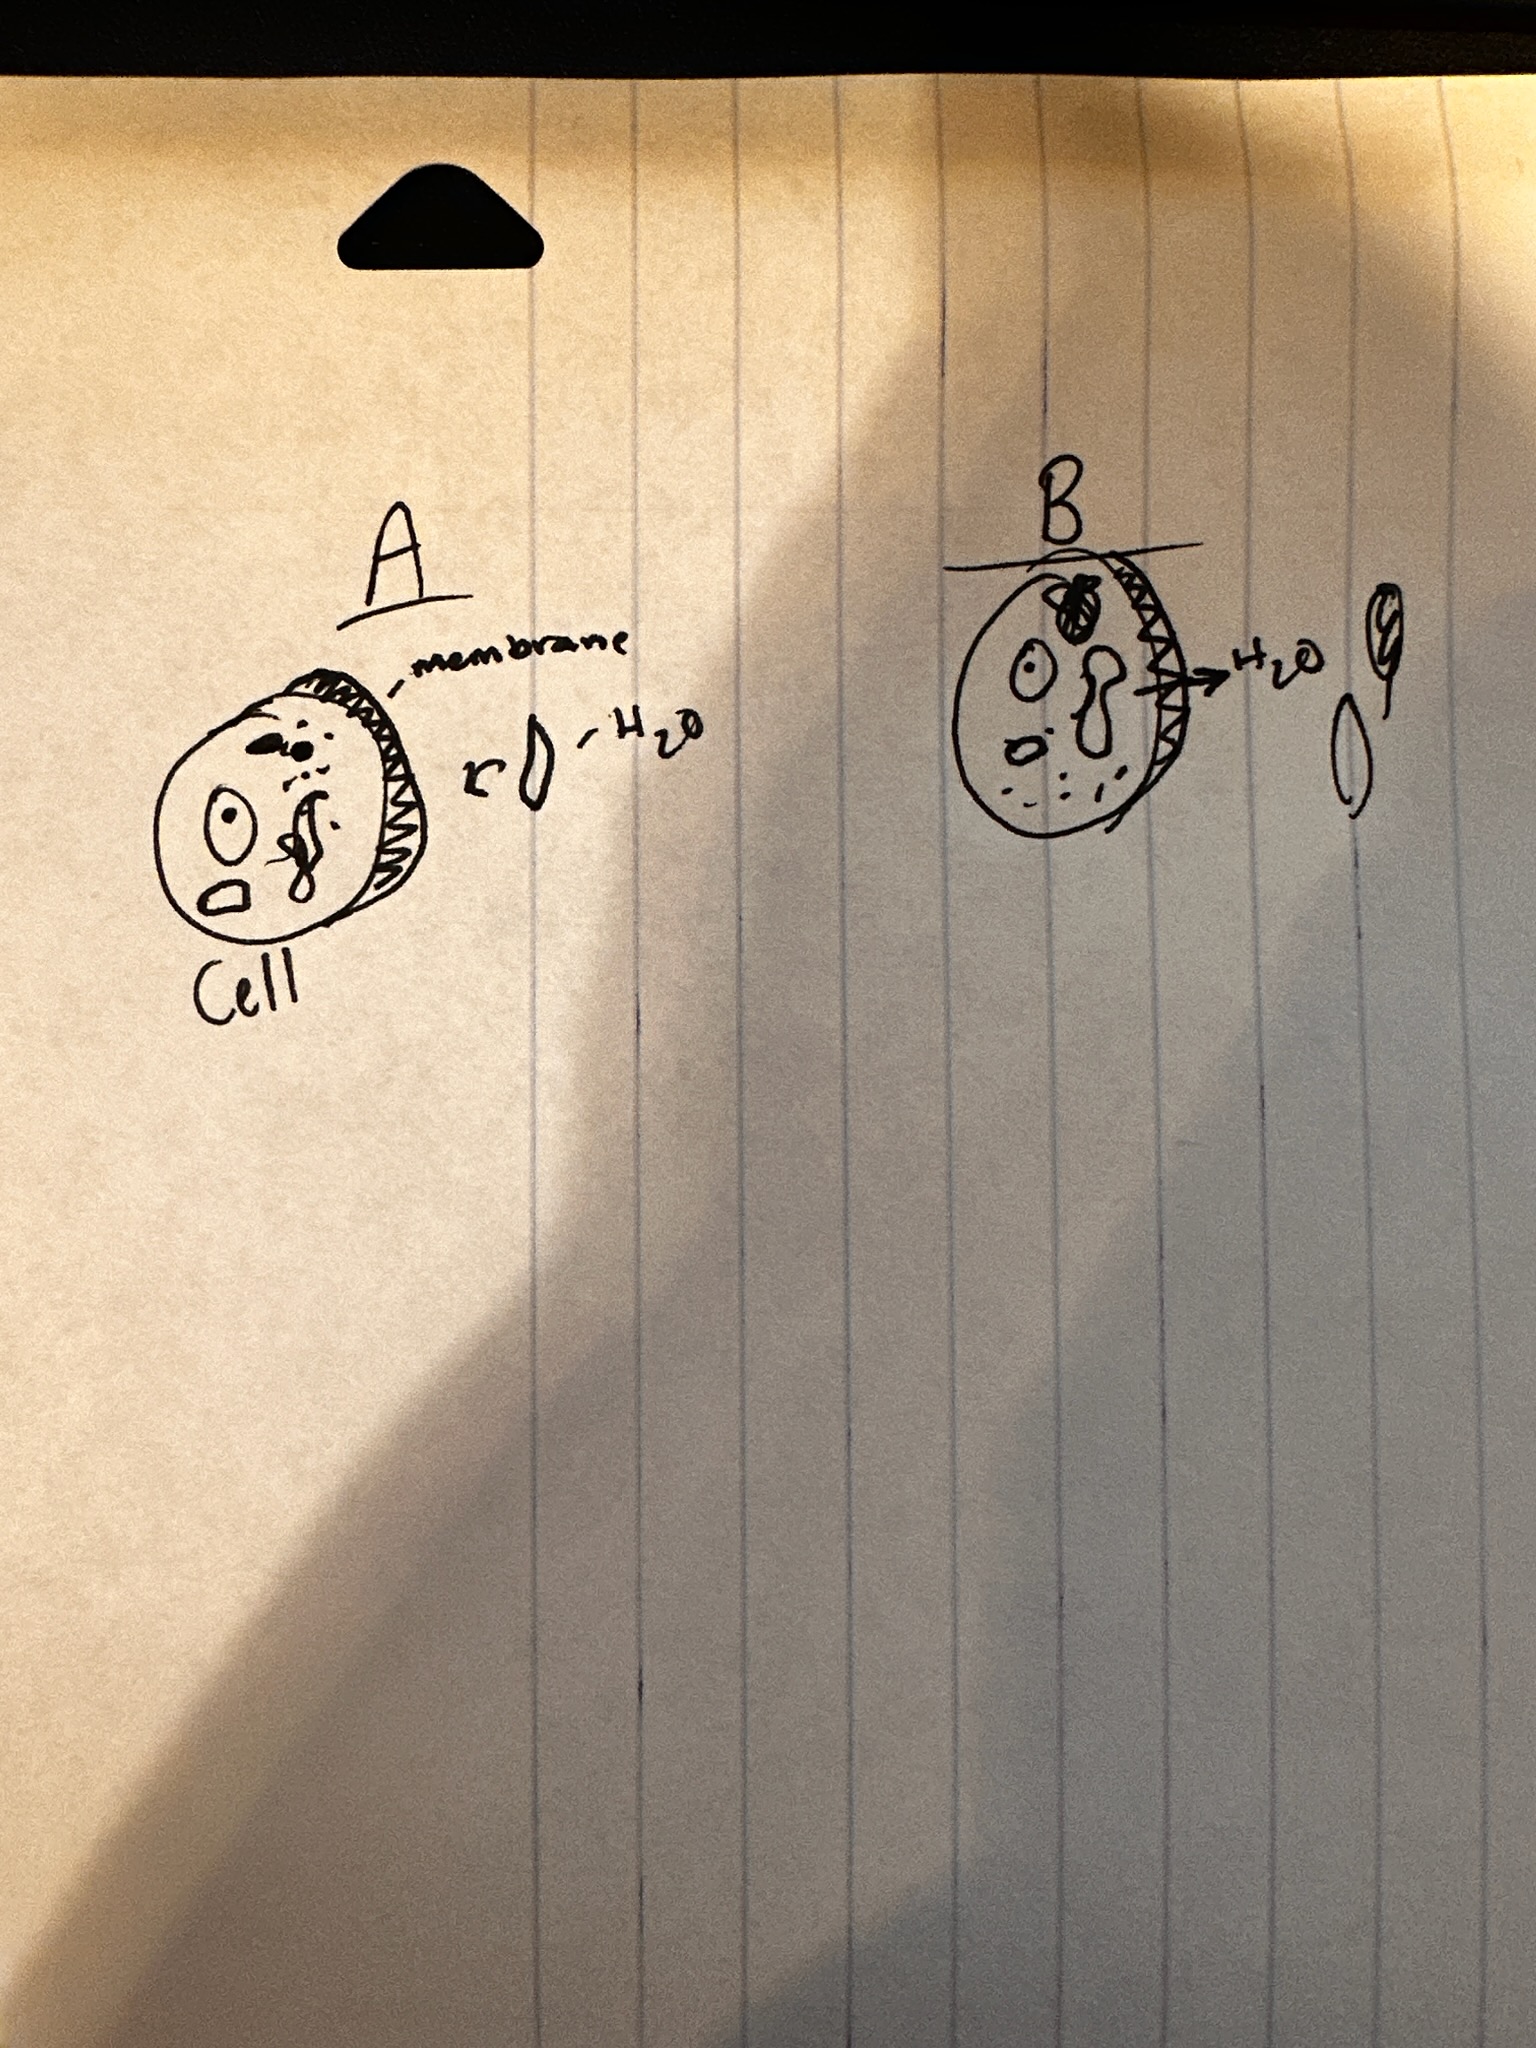 A
membrane
H2O
Cell
B
H2O